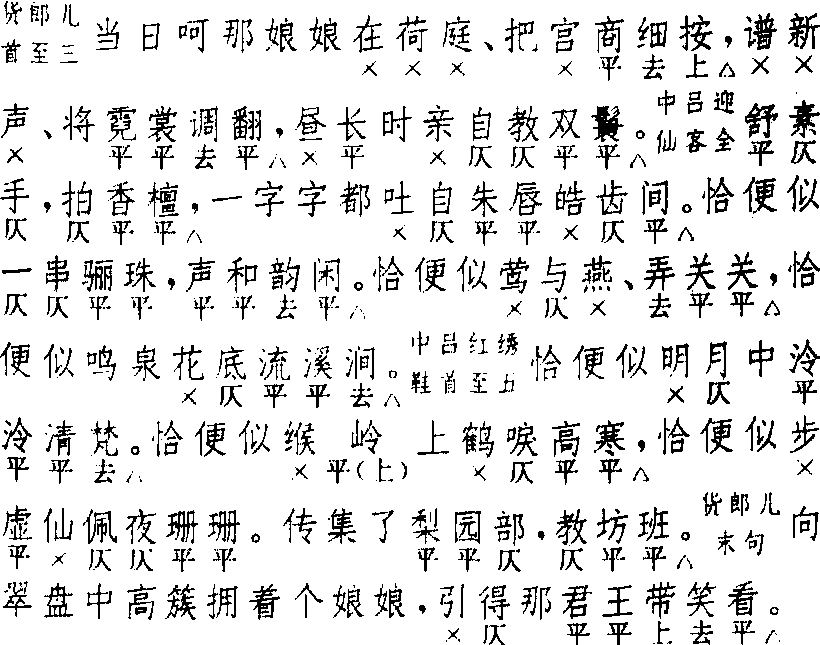 货郎儿首至三 当日呵那娘娘在荷庭、把宫商细按，谱新
× × × × 平 去 上 △ × ×
声、将霓裳调翻，昼长时亲自教双鬟。中吕迎仙客全 舒素
× 平 平 去 平 △ × 平 × 仄 仄 平 平 △ 平 仄
手，拍香檀，一字字都吐自朱唇皓齿间。恰便似
仄 仄 平 平 △ × 仄 平 平 × 仄 平 △
一串骊珠，声和韵闲。恰便似莺与燕、弄关关，恰
仄 仄 平 平 平 平 去 平 △ × 仄 × 去 平 平 △
便似鸣泉花底流溪涧。中吕红绣鞋首至五 恰便似明月中泠
× 仄 平 平 去 △ × 仄 平
泠清梵。恰便似缑 岭 上鹤唳高寒，恰便似步
平 平 去 △ × 平(上) × 仄 平 平 △ ×
虚仙佩夜珊珊。传集了梨园部，教坊班。货郎儿末句 向
平 × 仄 仄 平 平 平 平 仄 仄 平 平 △
翠盘中高簇拥着个娘娘，引得那君王带笑看。
× 仄 平 平 上 去 平 △